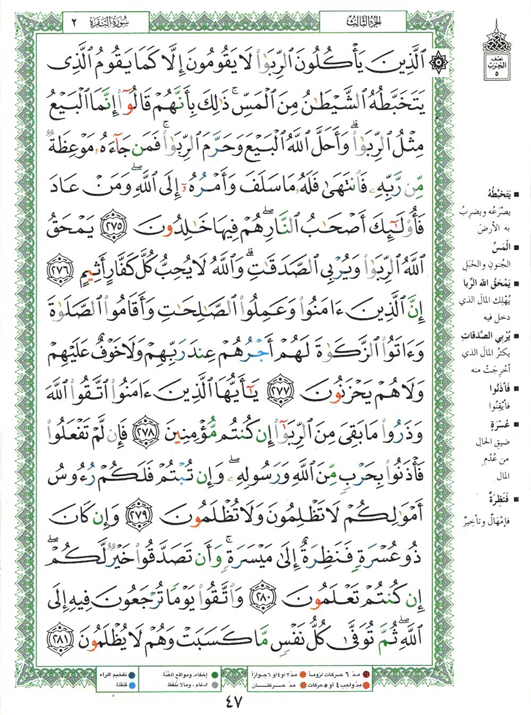 سُورَةُ البَقَرَةِ ٢
الجزء الثالث
نصف
الحزب
٥
ٱلَّذِينَ يَأْكُلُونَ ٱلرِّبَوٰا۟ لَا يَقُومُونَ إِلَّا كَمَا يَقُومُ ٱلَّذِى
يَتَخَبَّطُهُ ٱلشَّيْطَٰنُ مِنَ ٱلْمَسِّ ۚ ذَٰلِكَ بِأَنَّهُمْ قَالُوٓا۟ إِنَّمَا ٱلْبَيْعُ
مِثْلُ ٱلرِّبَوٰا۟ ۗ وَأَحَلَّ ٱللَّهُ ٱلْبَيْعَ وَحَرَّمَ ٱلرِّبَوٰا۟ ۚ فَمَن جَآءَهُۥ مَوْعِظَةٌ
مِّن رَّبِّهِۦ فَٱنتَهَىٰ فَلَهُۥ مَا سَلَفَ وَأَمْرُهُۥٓ إِلَى ٱللَّهِ ۖ وَمَنْ عَادَ
فَأُو۟لَٰٓئِكَ أَصْحَٰبُ ٱلنَّارِ ۖ هُمْ فِيهَا خَٰلِدُونَ ٢٧٥ يَمْحَقُ
ٱللَّهُ ٱلرِّبَوٰا۟ وَيُرْبِى ٱلصَّدَقَٰتِ ۗ وَٱللَّهُ لَا يُحِبُّ كُلَّ كَفَّارٍ أَثِيمٍ ٢٧٦
إِنَّ ٱلَّذِينَ ءَامَنُوا۟ وَعَمِلُوا۟ ٱلصَّٰلِحَٰتِ وَأَقَامُوا۟ ٱلصَّلَوٰةَ
وَءَاتَوُا۟ ٱلزَّكَوٰةَ لَهُمْ أَجْرُهُمْ عِندَ رَبِّهِمْ وَلَا خَوْفٌ عَلَيْهِمْ
وَلَا هُمْ يَحْزَنُونَ ٢٧٧ يَٰٓأَيُّهَا ٱلَّذِينَ ءَامَنُوا۟ ٱتَّقُوا۟ ٱللَّهَ
وَذَرُوا۟ مَا بَقِىَ مِنَ ٱلرِّبَوٰٓا۟ إِن كُنتُم مُّؤْمِنِينَ ٢٧٨ فَإِن لَّمْ تَفْعَلُوا۟
فَأْذَنُوا۟ بِحَرْبٍ مِّنَ ٱللَّهِ وَرَسُولِهِۦ ۖ وَإِن تُبْتُمْ فَلَكُمْ رُءُوسُ
أَمْوَٰلِكُمْ لَا تَظْلِمُونَ وَلَا تُظْلَمُونَ ٢٧٩ وَإِن كَانَ
ذُو عُسْرَةٍ فَنَظِرَةٌ إِلَىٰ مَيْسَرَةٍ ۚ وَأَن تَصَدَّقُوا۟ خَيْرٌ لَّكُمْ ۖ
إِن كُنتُمْ تَعْلَمُونَ ٢٨٠ وَٱتَّقُوا۟ يَوْمًا تُرْجَعُونَ فِيهِ إِلَى
ٱللَّهِ ۖ ثُمَّ تُوَفَّىٰ كُلُّ نَفْسٍ مَّا كَسَبَتْ وَهُمْ لَا يُظْلَمُونَ ٢٨١
■ يَتَخَبَّطُهُ
يصرَعُه ويضربُ
به الأرضَ
■ المَسِّ
الجُنونِ والخَبَلِ
■ يَمْحَقُ الله الرِّبا
يُهْلِكُ المالَ الذي
دخل فيه
■ يُرْبِي الصَّدَقاتِ
يكثّرُ المالَ الذي
أُخْرِجَتْ منه
■ فَأْذَنُوا
فأيْقِنُوا
■ عُسْرَةٍ
ضيق الحال
من عُدْمِ
المال
■ فَنَظِرَةٌ
فإمْهالٌ وتأخيرٌ
مدّ ٦ حركات لزوماً
مدّ ٢ أو ٤ أو ٦ جوازاً
إخفاء، ومواقع الغُنَّة
تفخيم الراء
مدّ واجب ٤ أو ٥ حركات
مدّ حركتان
ادغام، وما لا يُلفَظ
قلقلة
٤٧